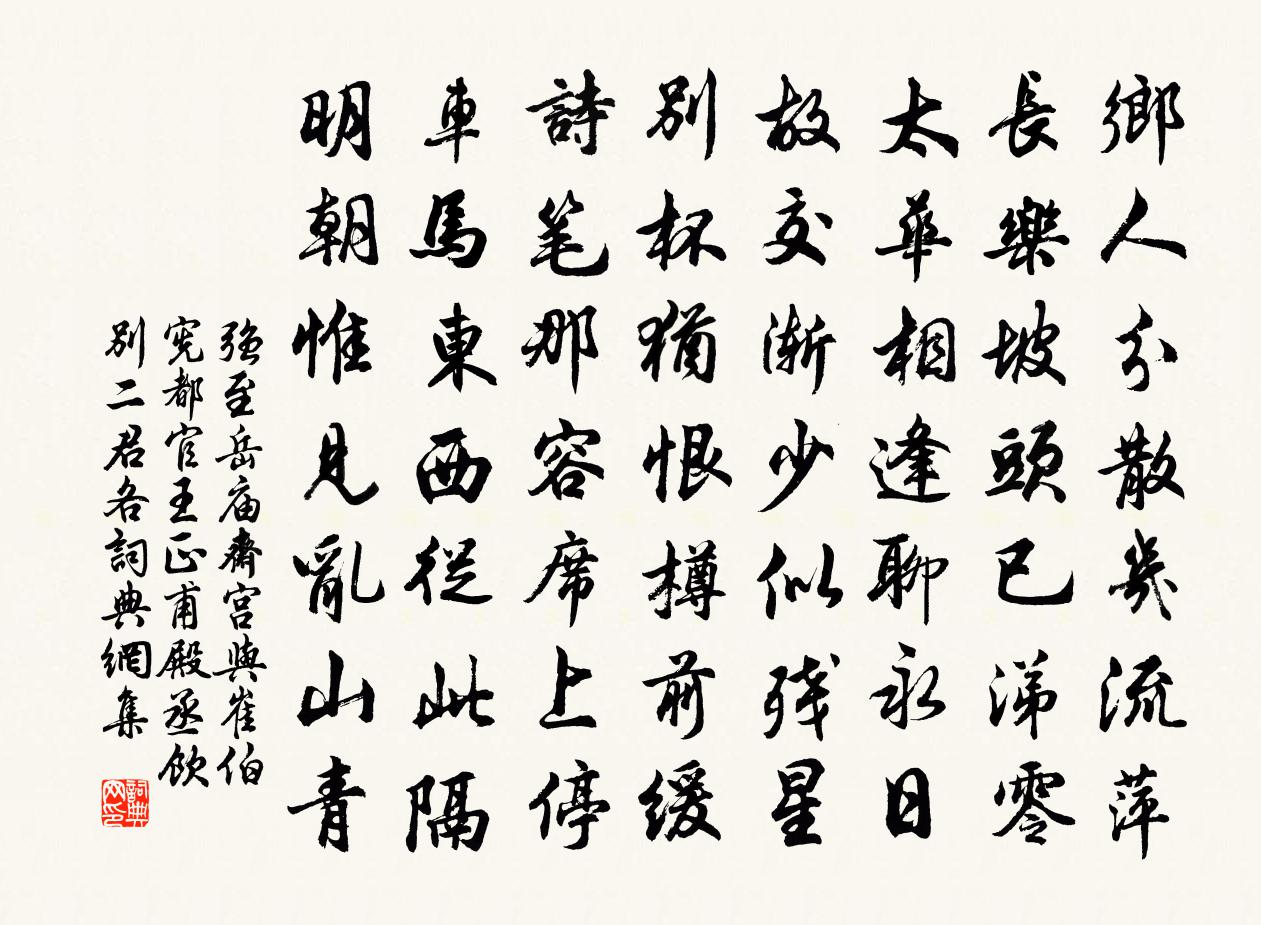 鄉人分散幾流萍
長樂坡頭已涕零
太華相逢聊永日
故交漸少似残星
別杯猶恨樽前緩
詩笔那容席上停
車馬東西從此隔
明朝惟見亂山青
強至岳庙齋宫與崔伯
寃都官王正甫殿丞飲
別二君各詞典網集
詞典
网印